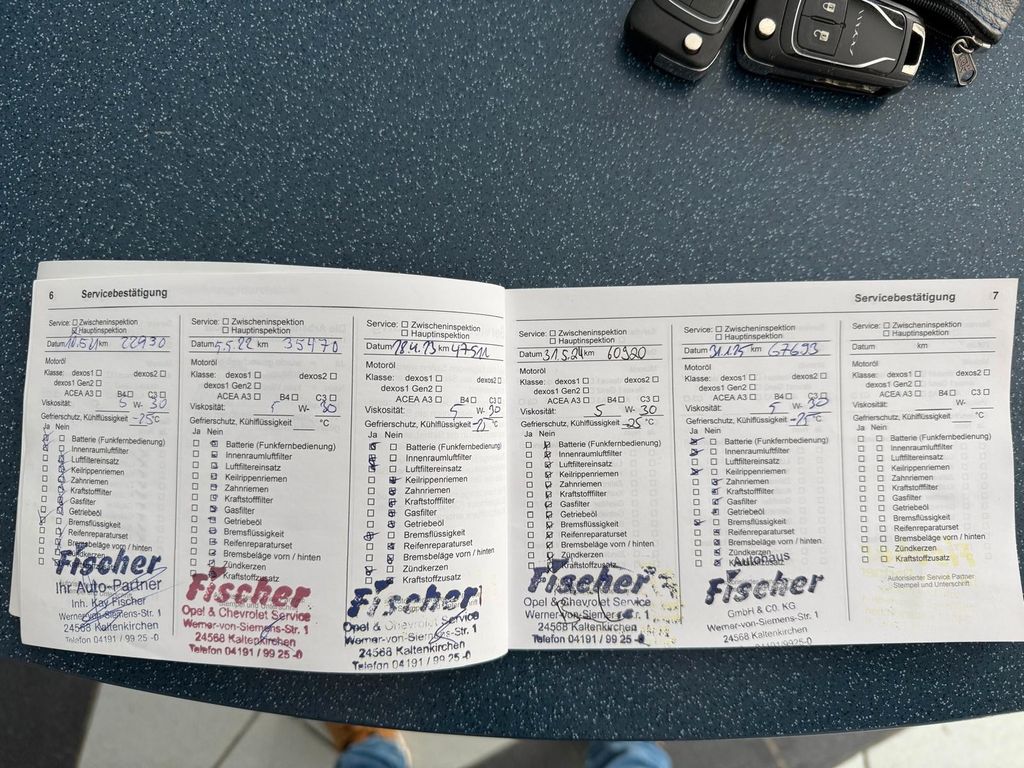 6 Servicebestätigung
Service: Zwischeninspektion
Hauptinspektion
Datum km 22930
Motoröl
Klasse: dexos1 dexos2
dexos1 Gen2
ACEA A3 B4 C3
Viskosität: 5 W- 30
Gefrierschutz, Kühlflüssigkeit -25 °C
Ja Nein
Batterie (Funkfernbedienung)
Innenraumluftfilter
Luftfiltereinsatz
Keilrippenriemen
Zahnriemen
Kraftstofffilter
Gasfilter
Getriebeöl
Bremsflüssigkeit
Reifenreparaturset
Bremsbeläge vorn / hinten
Zündkerzen
Fischer
Ihr Auto-Partner
Inh. Kay Fischer
Werner-von-Siemens-Str. 1
24568 Kaltenkirchen
Telefon 04191 / 99 25 -0
Service: Zwischeninspektion
Hauptinspektion
Datum 5.5.22 km 35470
Motoröl
Klasse: dexos1 dexos2
dexos1 Gen2
ACEA A3 B4 C3
Viskosität: 5 W- 30
Gefrierschutz, Kühlflüssigkeit °C
Ja Nein
Batterie (Funkfernbedienung)
Innenraumluftfilter
Luftfiltereinsatz
Keilrippenriemen
Zahnriemen
Kraftstofffilter
Gasfilter
Getriebeöl
Bremsflüssigkeit
Reifenreparaturset
Bremsbeläge vorn / hinten
Zündkerzen
Kraftstoffzusatz
Fischer
Opel & Chevrolet Service
Werner-von-Siemens-Str. 1
24568 Kaltenkirchen
Telefon 04191 / 99 25 -0
Service: Zwischeninspektion
Hauptinspektion
Datum 18.4.23 km 47511
Motoröl
Klasse: dexos1 dexos2
dexos1 Gen2
ACEA A3 B4 C3
Viskosität: 5 W- 30
Gefrierschutz, Kühlflüssigkeit -25 °C
Ja Nein
Batterie (Funkfernbedienung)
Innenraumluftfilter
Luftfiltereinsatz
Keilrippenriemen
Zahnriemen
Kraftstofffilter
Gasfilter
Getriebeöl
Bremsflüssigkeit
Reifenreparaturset
Bremsbeläge vorn / hinten
Zündkerzen
Kraftstoffzusatz
Fischer
Opel & Chevrolet Service
Werner-von-Siemens-Str. 1
24568 Kaltenkirchen
Telefon 04191 / 99 25 -0
Servicebestätigung 7
Service: Zwischeninspektion
Hauptinspektion
Datum 31.5.24 km 60920
Motoröl
Klasse: dexos1 dexos2
dexos1 Gen2
ACEA A3 B4 C3
Viskosität: 5 W- 30
Gefrierschutz, Kühlflüssigkeit -25 °C
Ja Nein
Batterie (Funkfernbedienung)
Innenraumluftfilter
Luftfiltereinsatz
Keilrippenriemen
Zahnriemen
Kraftstofffilter
Gasfilter
Getriebeöl
Bremsflüssigkeit
Reifenreparaturset
Bremsbeläge vorn / hinten
Zündkerzen
Kraftstoffzusatz
Fischer
Opel & Chevrolet Service
Werner-von-Siemens-Str. 1
24568 Kaltenkirchen
Telefon 04191 / 99 25 -0
Service: Zwischeninspektion
Hauptinspektion
Datum km 67693
Motoröl
Klasse: dexos1 dexos2
dexos1 Gen2
ACEA A3 B4 C3
Viskosität: 5 W- 30
Gefrierschutz, Kühlflüssigkeit -25 °C
Ja Nein
Batterie (Funkfernbedienung)
Innenraumluftfilter
Luftfiltereinsatz
Keilrippenriemen
Zahnriemen
Kraftstofffilter
Gasfilter
Getriebeöl
Bremsflüssigkeit
Reifenreparaturset
Bremsbeläge vorn / hinten
Zündkerzen
Autohaus
Fischer
GmbH & CO. KG
Werner-von-Siemens-Str. 1
24568 Kaltenkirchen
Service: Zwischeninspektion
Hauptinspektion
Datum km
Motoröl
Klasse: dexos1 dexos2
dexos1 Gen2
ACEA A3 B4 C3
Viskosität: W-
Gefrierschutz, Kühlflüssigkeit °C
Ja Nein
Batterie (Funkfernbedienung)
Innenraumluftfilter
Luftfiltereinsatz
Keilrippenriemen
Zahnriemen
Kraftstofffilter
Gasfilter
Getriebeöl
Bremsflüssigkeit
Reifenreparaturset
Bremsbeläge vorn / hinten
Zündkerzen
Kraftstoffzusatz
Autorisierter Service Partner
Stempel und Unterschrift